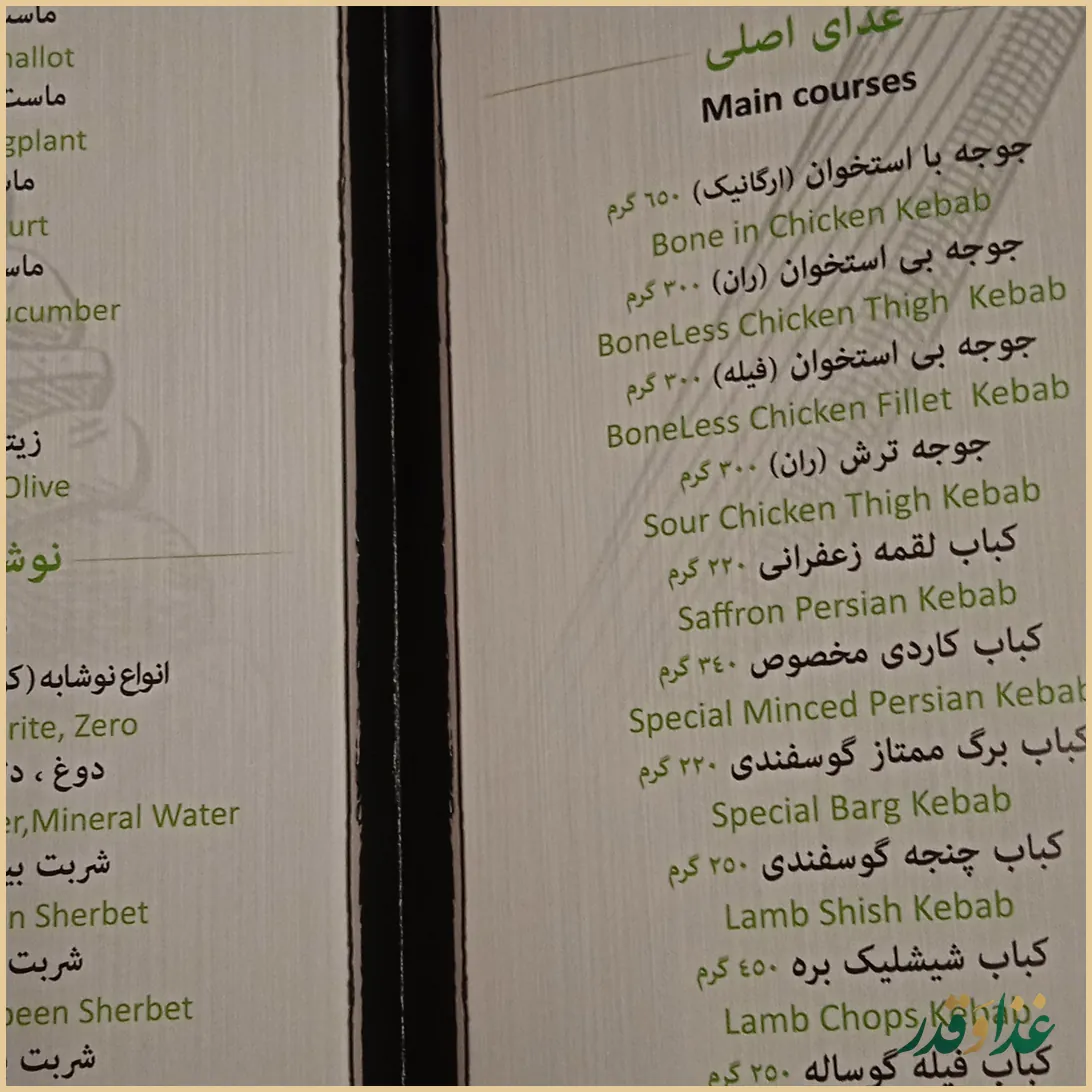 غذای اصلی
Main courses
جوجه با استخوان (ارگانیک) ٦٥٠ گرم
Bone in Chicken Kebab
جوجه بی استخوان (ران) ۳۰۰ گرم
BoneLess Chicken Thigh Kebab
جوجه بی استخوان (فیله) ۳۰۰ گرم
BoneLess Chicken Fillet Kebab
جوجه ترش (ران) ۳۰۰ گرم
Sour Chicken Thigh Kebab
کباب لقمه زعفرانی ۲۲۰ گرم
Saffron Persian Kebab
کباب کاردی مخصوص ۳٤۰ گرم
Special Minced Persian Kebab
کباب برگ ممتاز گوسفندی ۲۲۰ گرم
Special Barg Kebab
کباب چنجه گوسفندی ۲٥۰ گرم
Lamb Shish Kebab
کباب شیشلیک بره ٤٥۰ گرم
Lamb Chops Kebab
کباب فیله گوساله ۲٥۰ گرم
ماست
hallot
ماست
gplant
urt
ucumber
Olive
انواع نوشابه (ک
rite, Zero
دوغ ، د
er,Mineral Water
شربت بی
n Sherbet
شربت
been Sherbet
شربت
غذا و قدر